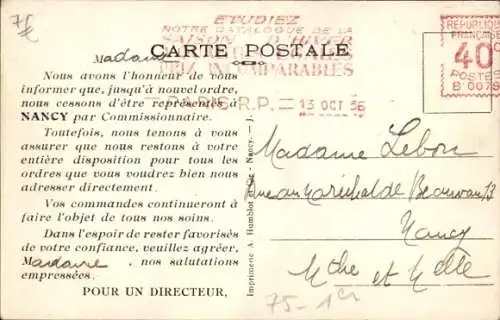 75
€
ETUDIEZ
NOTRE CATALOGUE DE LA
SAISON D'HIVER
CARTE POSTALE
PRIX INCOMPARABLES
PARIS R.P. 13 OCT 36
REPUBLIQUE
FRANÇAISE
40
POSTES
B 0079
Madame
Nous avons l'honneur de vous
informer que, jusqu'à nouvel ordre,
nous cessons d'être représentés à
NANCY par Commissionnaire.
Toutefois, nous tenons à vous
assurer que nous restons à votre
entière disposition pour tous les
ordres que vous voudrez bien nous
adresser directement.
Vos commandes continueront à
faire l'objet de tous nos soins.
Dans l'espoir de rester favorisés
de votre confiance, veuillez agréer,
Madame, nos salutations
empressées.
POUR UN DIRECTEUR,
Imprimerie A. Humblot et Cie - Nancy. - J.
Madame Lebon
rue du Maréchal de 13
Nancy
Mthe et Melle
75-1er